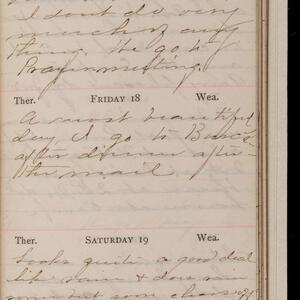 I dont do very
much of any
thing. We go to
Prayermeeting.
Ther. FRIDAY 18 Wea.
A most beautiful
day I go to
after dinner after
the mail
Ther. SATURDAY 19 Wea.
Looks quite a good deal
like rain & does rain
some but soon clears off